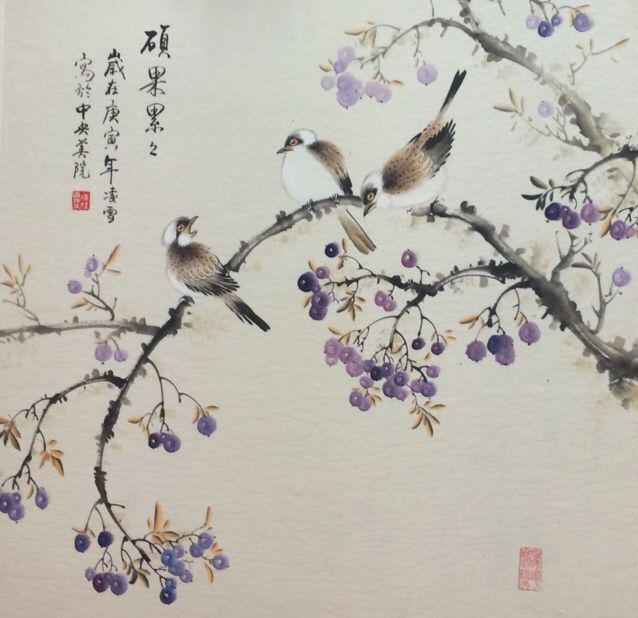 碩果累々
歲在庚寅年凌雪
寫於中央美院